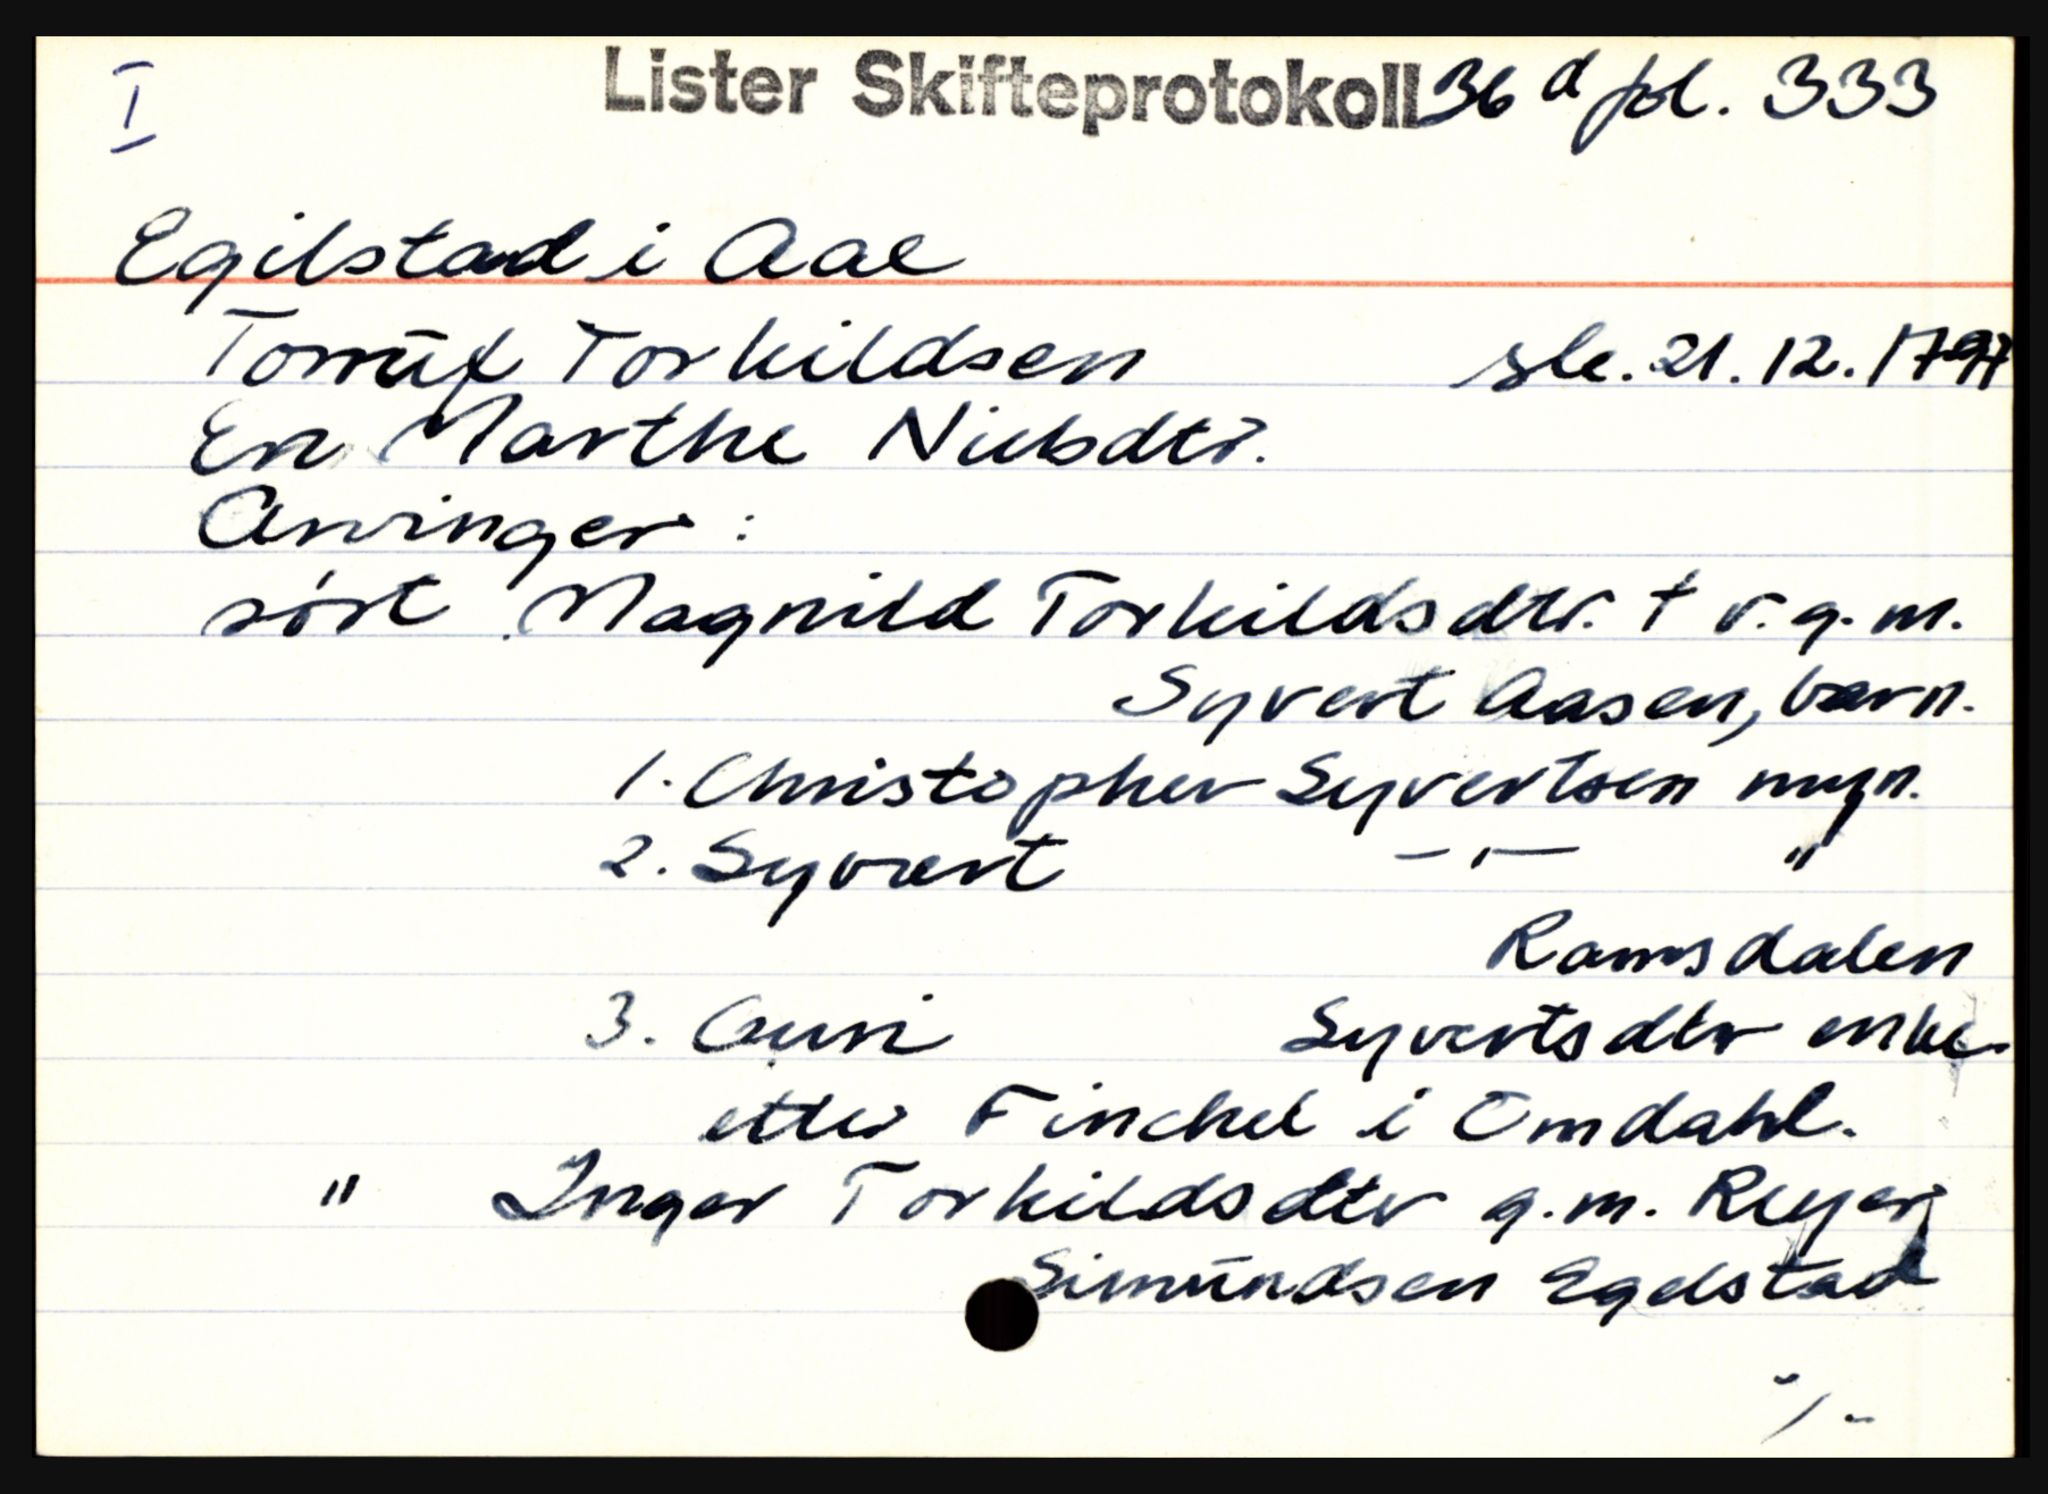 I
Lister Skifteprotokoll 36 d fol. 333
Egilstad i Aae
Tormūf Torkildsen sle. 21.12.1797
En Marthe Nielsdtr.
Arvinger :
søst Magnild Torkildsdtr. † v. g. m.
Syvert Aasen, barn.
1. Christopher Syvertsen myn.
2. Syvert —"— "
Ramsdalen
3. Guri Syvertsdtr enke
etter Finchel i Omdahl.
" Inger Torkildsdtr g. m. Reyer
Simūndsen Egelstad
./.